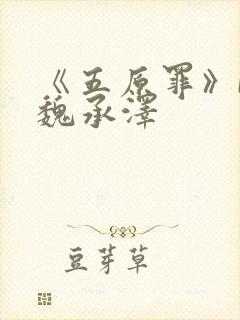 《五原罪》
魏承泽
豆芽草